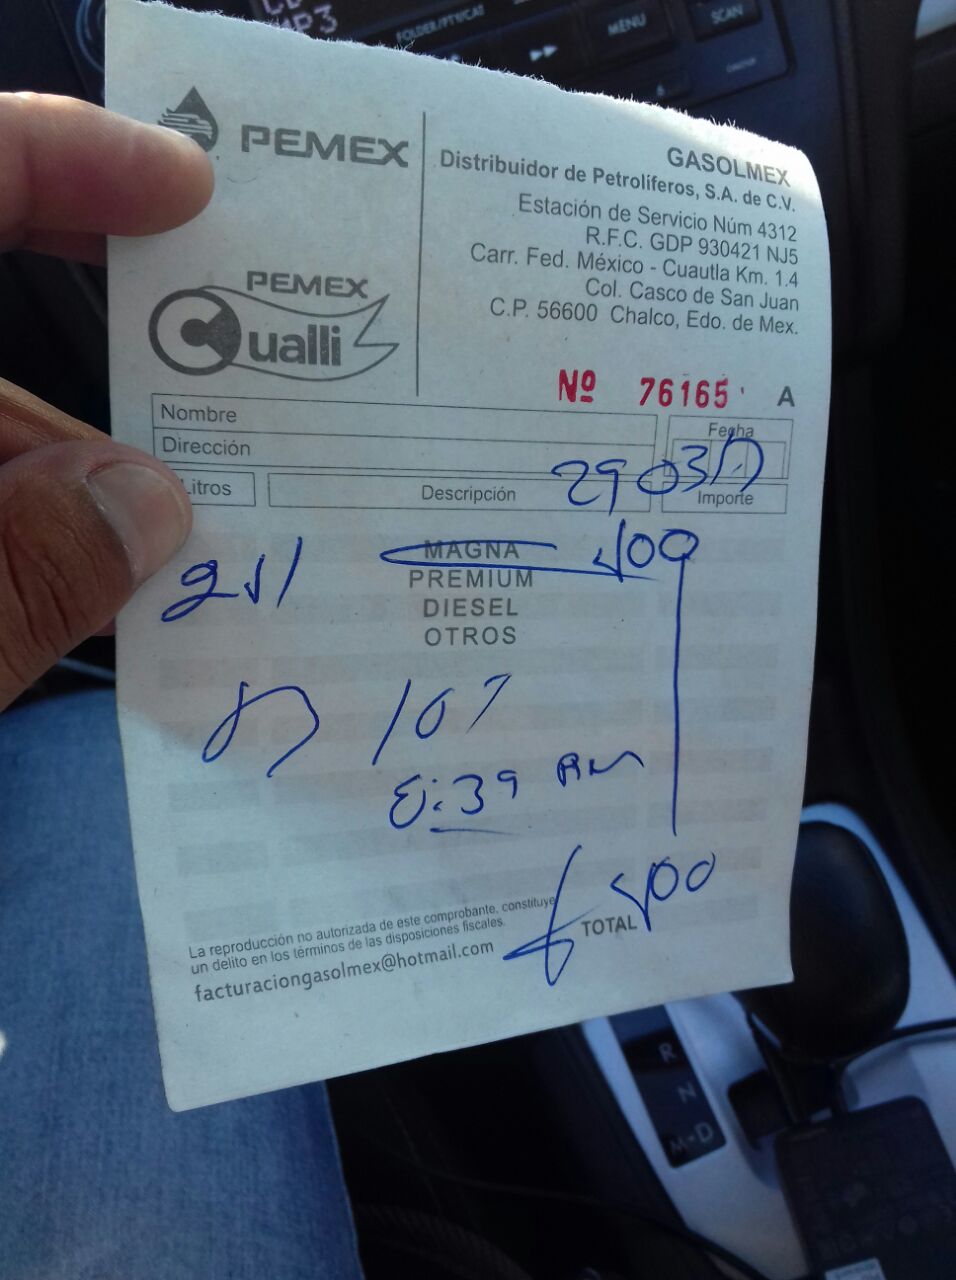 MP3
FOLDER/PTY/CAT
MENU
SCAN
6
PEMEX
GASOLMEX
Distribuidor de Petrolíferos, S.A. de C.V.
Estación de Servicio Núm 4312
R.F.C. GDP 930421 NJ5
Carr. Fed. México - Cuautla Km. 1.4
Col. Casco de San Juan
C.P. 56600 Chalco, Edo. de Mex.
PEMEX
Cualli
Nº 76165 A
Nombre
Fecha
Dirección
29 03 17
Litros
Descripción
Importe
MAGNA
PREMIUM
DIESEL
OTROS
107
8:39 AM
La reproducción no autorizada de este comprobante, constituye
un delito en los términos de las disposiciones fiscales.
TOTAL
facturaciongasolmex@hotmail.com
R
N
M-D